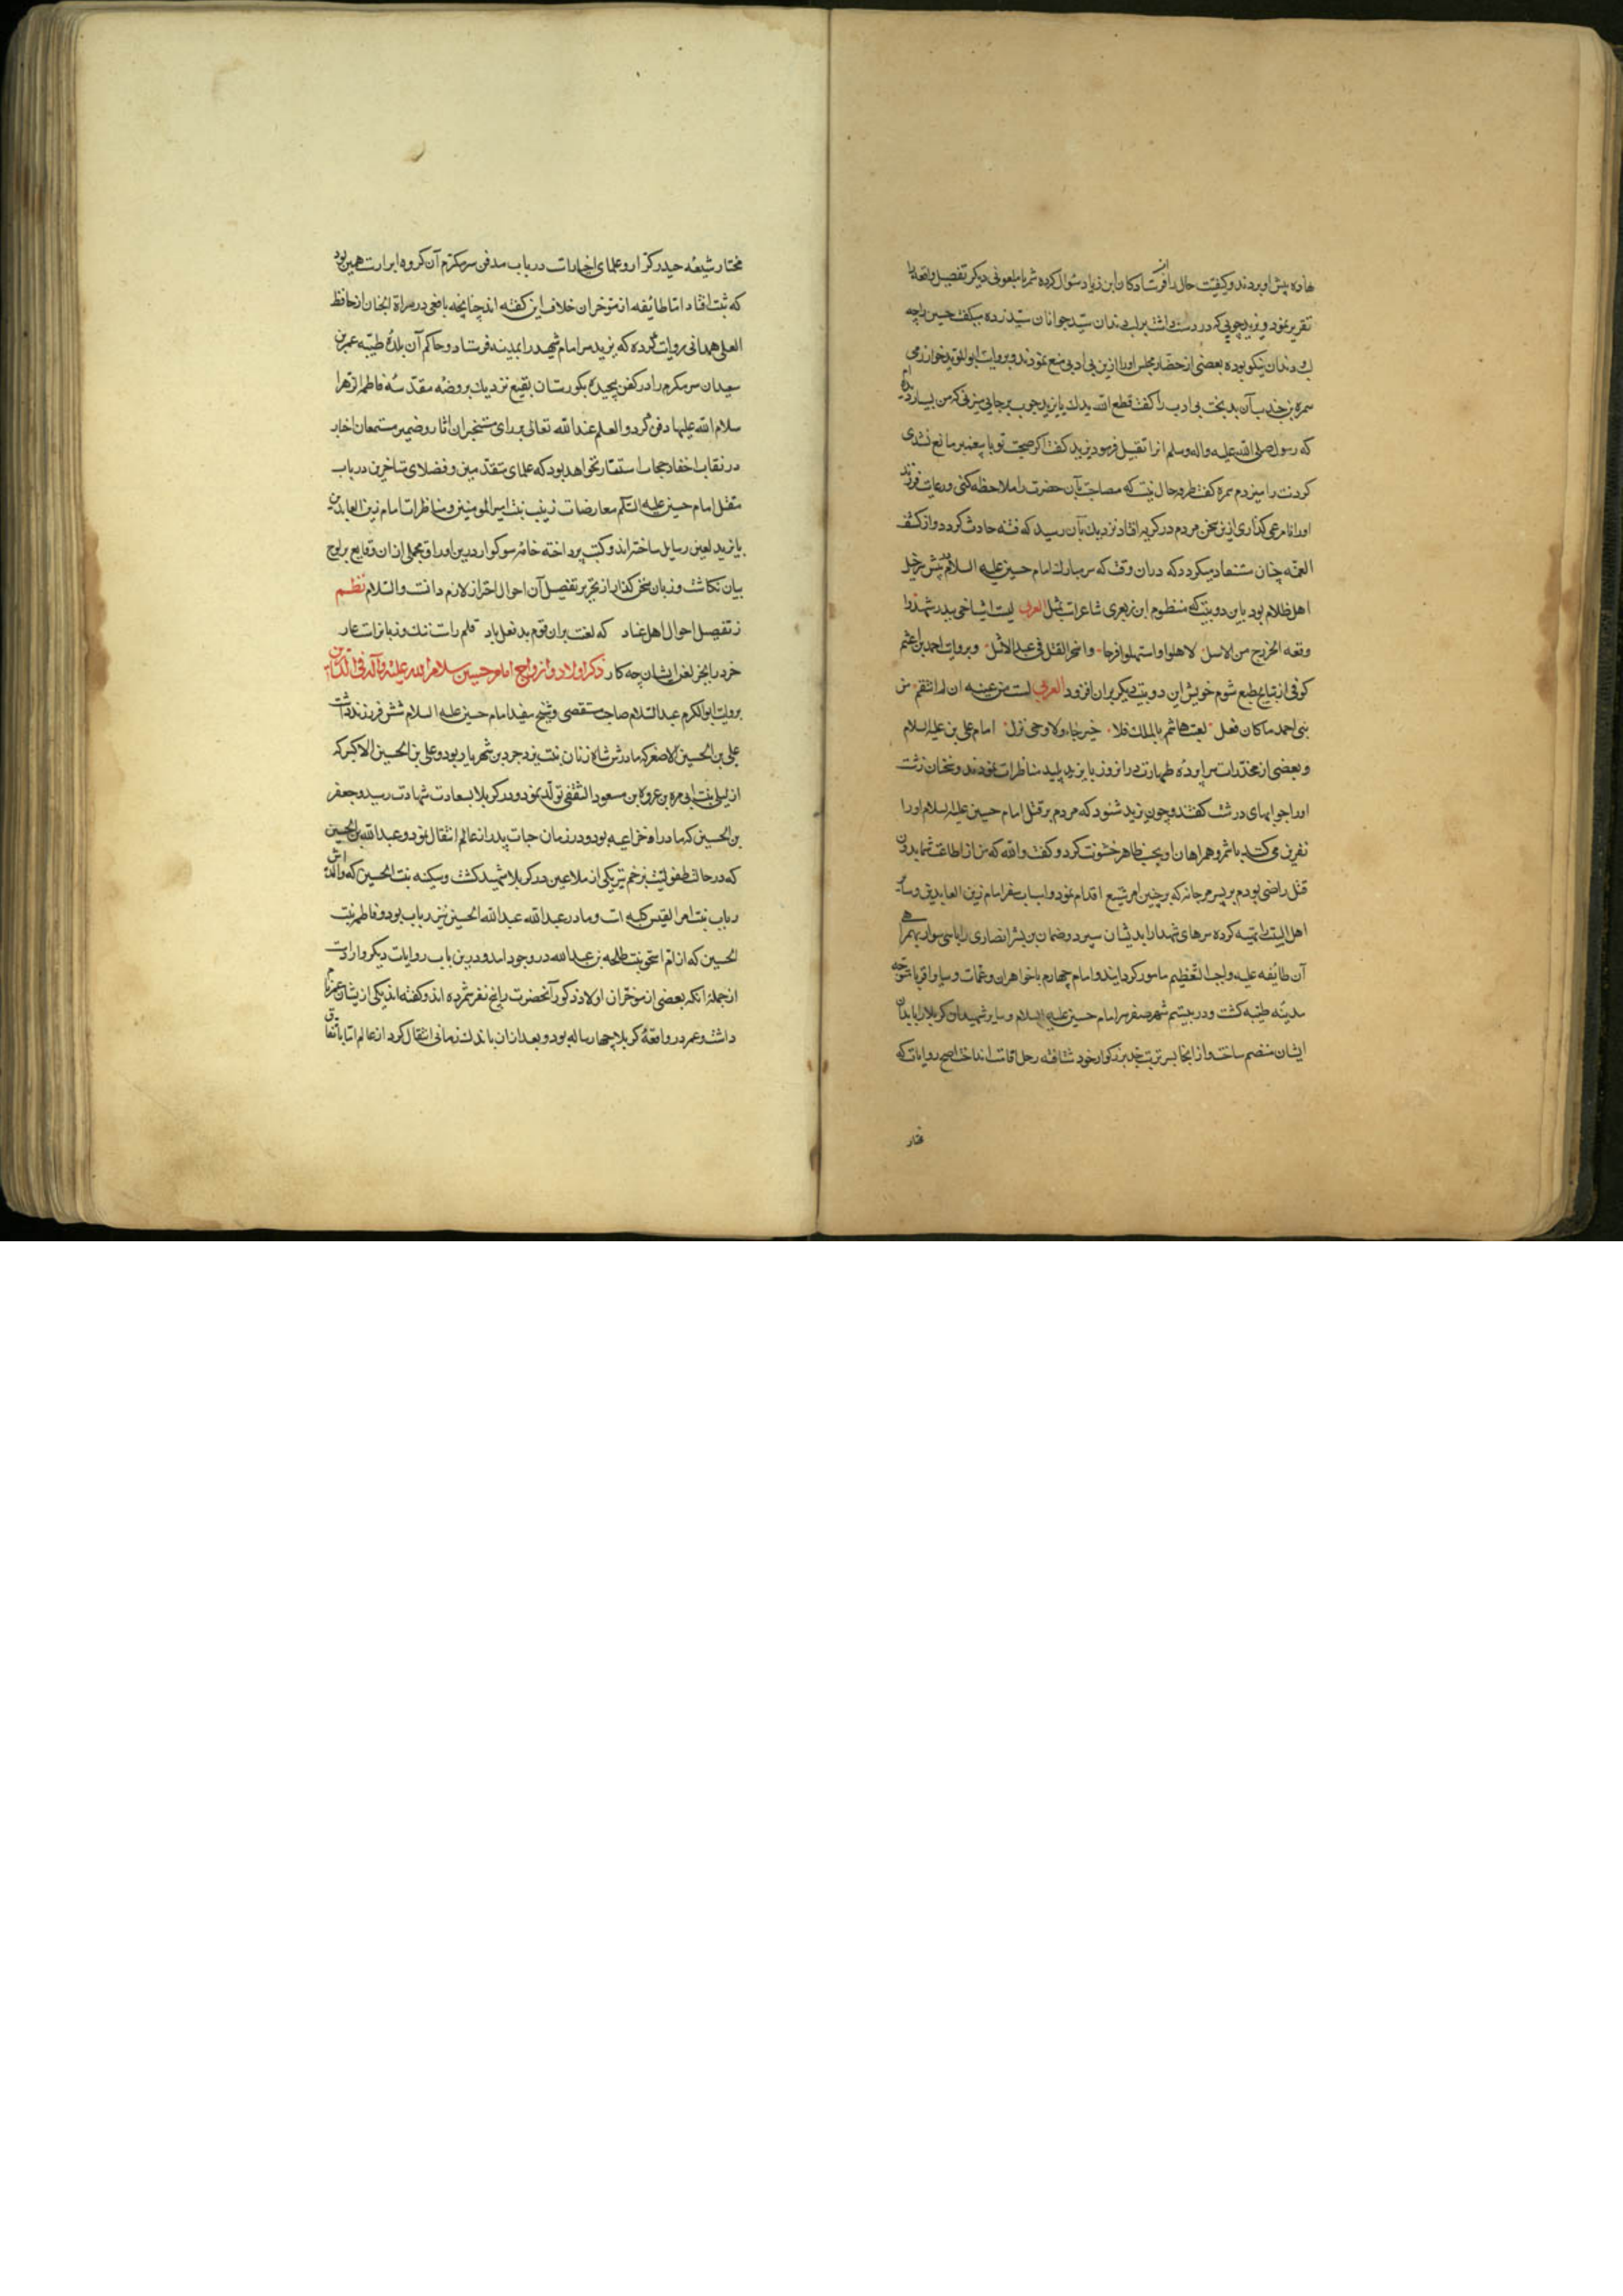 نهاده پیش او بردند و کیفیت حال را از فرستادکان ابن زیاد سؤال کرده شمر یا ملعونی دیکر تفصیل واقعه را
تقریر نمود و یزید چوبی که در دست داشت بر لب و دندان سید جوانان سید زده میکفت حسین را چه
لب و دندان نیکو بوده بعضی از حضار مجلس او را ازین بی ادبی منع نمودند و بروایت ابو المؤید خوارزمی
سمرة بن جندب آن بدبخت بی ادب را کفت قطع الله یدک یا یزید چوب بر جایی میزنی که من بسیار دیده ام
که رسول صلی الله علیه و اله وسلم انرا تقبیل فرمود یزید کفت اکر صحبت تو با پیغمبر مانع نشدی
کردنت را میزدم سمره کفت طرفه حالیست که مصاحبت بآن حضرت را ملاحظه کنی و رعایت فرزند
او را نامرعی کذاری ازین سخن مردم در کریه افتاد نزدیک بآن رسید که فتنه حادث کردد و از کشف
الغمه چنان مستفاد میکردد که دران وقت که سر مبارک امام حسین علیه السلام در پیش
اهل ظلام بود باین دو بیت که منظوم ابن زبعری شاعرست تمثل العربی لیت اشیاخی ببدر شهدوا
وقعه الخزرج من الاسل لاهلوا و استهلوا فرحا و استحر القتل فی عبد الاشل و بروایت احمد بن اعثم
کوفی از نتایج طبع شوم خویش این دو بیت دیکر بران افزود العربی لست من عتبه ان لم انتقم من
بنی احمد ماکان فعل لعبت هاشم بالملک فلا خبر جاء ولا وحی نزل امام علی بن علیه السلام
و بعضی از مخدرات سراپرده طهارت در انروز با یزید پلید مناظرات نمودند و سخنان زشت
او را جوابهای درشت کفتند و چون یزید شنود که مردم بر قتل امام حسین علیه السلام او را
نفرین می کنند با شمر و همراهان او بحسب ظاهر خشونت کرد و کفت والله که من از اطاعت شما بدون
قتل راضی بودم پسر مرجانه که بر چنین امر شنیع اقدام نمود و اسباب سفر امام زین العابدین و سایر
اهل البیت را تهیه کرده سرهای شهدا را بدیشان سپرد و نعمان بن بشیر انصاری را با سی سوار بهمراهی
آن طائفه علیه واجب التعظیم مامور کردانید و امام چهارم با خواهران و عمات و سایر اقربا متوجه
مدینه طیبه کشت و در بیستم شهر صفر سر امام حسین علیه السلام و سایر شهیدان کربلا را بابدان
ایشان منضم ساخت و از انجا بسر تربت جد بزرکوار خود شتافته رحل اقامت انداخت اصح روایات که
مختار
مختار شیعه حیدر کرار و علمای اخبارست در باب مدفن سر مکرم آن کروه ابرارست همین بود
که ثبت افتاد اما طائیفه از متوخران خلاف این کفته اند چنانچه یافعی در مراة الجنان از حافظ
العلی همدانی روایت کرده که یزید سر امام شهید را بمدینه فرستاد و حاکم آن بلدهٔ طیبه عمر بن
سعید ان سر مکرم را در کفن پیچیده بکورستان بقیع نزدیک بروضه مقدسه فاطمه الزهرا
سلام الله علیها دفن کرد و العلم عند الله تعالی بر رای مستخبران اثار و ضمیر مستمعان اخبار
در نقاب اختفا و حجاب استتار نخواهد بود که علمای متقدمین و فضلای متاخرین در باب
مقتل امام حسین علیه السلام و معارضات زینب بنت امیر المومنین و مناظرات امام زین العابدین
با یزید لعین رسایل ساخته اند و کتب پرداخته خامه سوکوار درین اوراق مجملی ازان وقایع بر لوح
بیان نکاشت و زبان سخن کذار از تحریر تفصیل آن احوال احتراز لازم دانست و السلام نظم
ز تفصیل احوال اهل عناد که لعنت بران قوم بدفعل باد قلم راست ننک و زبانراست عار
خرد را بجز لعن ایشان چه کار ذکر اولاد و ازواج امام حسین سلام الله علیه و آله فی الدارین
بروایت ابو المکرم عبد السلام صاحب مستقصی و شیخ مفید امام حسین علیه السلام شش فرزند داشت
علی بن الحسین الاصغر که مادرش شاه زنان بنت یزدجرد بن شهریار بود و علی بن الحسین الاکبر که
از لیلی بنت ابی مره بن عروه بن مسعود الثقفی تولد نمود و در کربلا بسعادت شهادت رسید و جعفر
بن الحسین که مادر او خزاعیه بود و در زمان حیات پدر از عالم انتقال نمود و عبد الله بن الحسین
که در حالت طفولیت بزخم تیر یکی از ملاعین در کربلا شهید کشت و سکینه بنت الحسین که والده اش
رباب بنت امرا القیس کلبیه است و مادر عبد الله عبد الله الحسین نیز رباب بود و فاطمه بنت
الحسین که از ام اسحق بنت طلحه بن عبد الله در وجود امد و درین باب روایات دیکر وارداست
از جمله انکه بعضی از موخران اولاد ذکور آنحضرت را پنج نفر شمرده اند و کفته اند یکی از یشان عمر نام
داشت و عمر در واقعهٔ کربلا چهار ساله بود و بعد ازان باندک زمانی انتقال کرد از عالم اما باتفاق